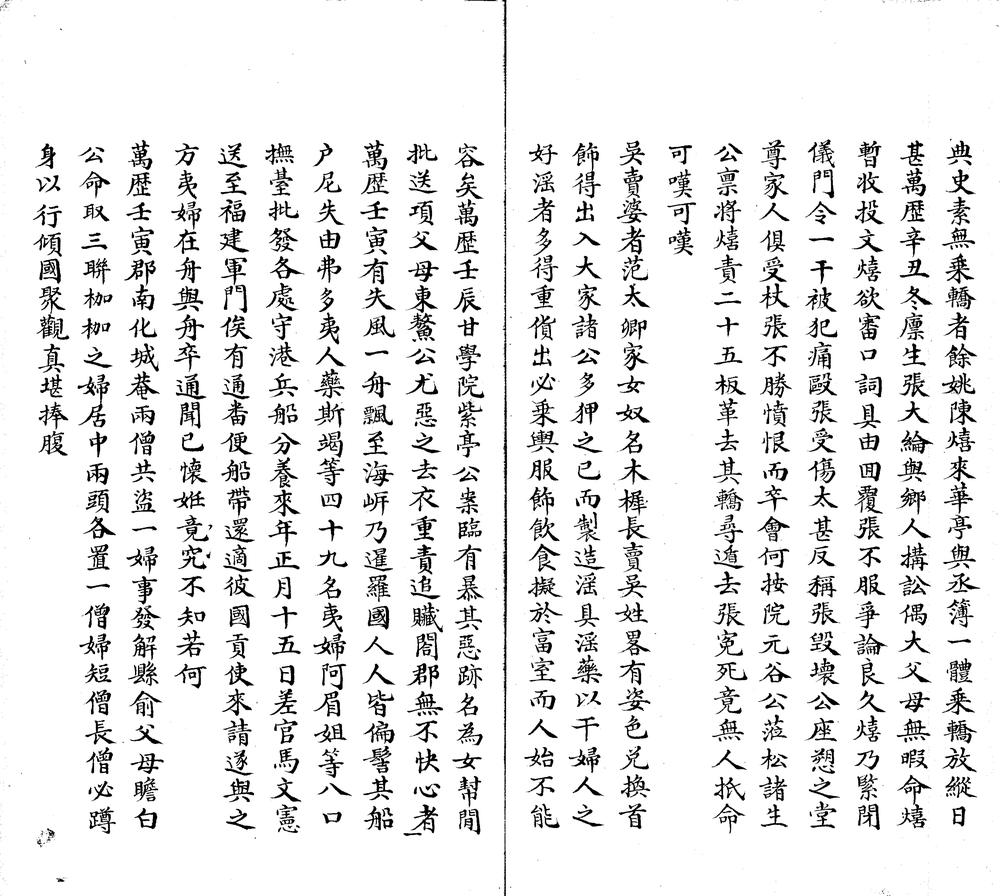 典史素無乘轎者餘姚陳熺來華亭與丞簿一體乘轎放縱日
甚萬歷辛丑冬廩生張大綸與鄉人搆訟偶大父母無暇命熺
暫收投文熺欲審口詞具由回覆張不服爭論良久熺乃緊閉
儀門令一干被犯痛毆張受傷太甚反稱張毀壞公座愬之堂
尊家人俱受杖張不勝憤恨而卒會何按院元谷公蒞松諸生
公禀將熺責二十五板革去其轎尋遁去張寃死竟無人抵命
可嘆可嘆
吳賣婆者范太卿家女奴名木樨長賣吳姓畧有姿色兌換首
飾得出入大家諸公多狎之已而製造滛具滛藥以干婦人之
好滛者多得重貨出必乘輿服飾飲食擬於富室而人始不能
容矣萬歷壬辰甘學院紫亭公案臨有暴其惡跡名為女幇閒
批送項父母東鰲公尤惡之去衣重責追贓閤郡無不快心者
萬歷壬寅有失風一舟飄至海㟁乃暹羅國人人皆偏髻其船
户尼失由弗多夷人藥斯竭等四十九名夷婦阿眉姐等八口
撫臺批發各處守港兵船分養來年正月十五日差官馬文憲
送至福建軍門俟有通畨便船帶還適彼國貢使來請遂與之
方夷婦在舟與舟卒通聞已懷姙竟究不知若何
萬歷壬寅郡南化城菴兩僧共盜一婦事發解縣俞父母瞻白
公命取三聯枷枷之婦居中兩頭各置一僧婦短僧長僧必蹲
身以行傾國聚觀真堪捧腹